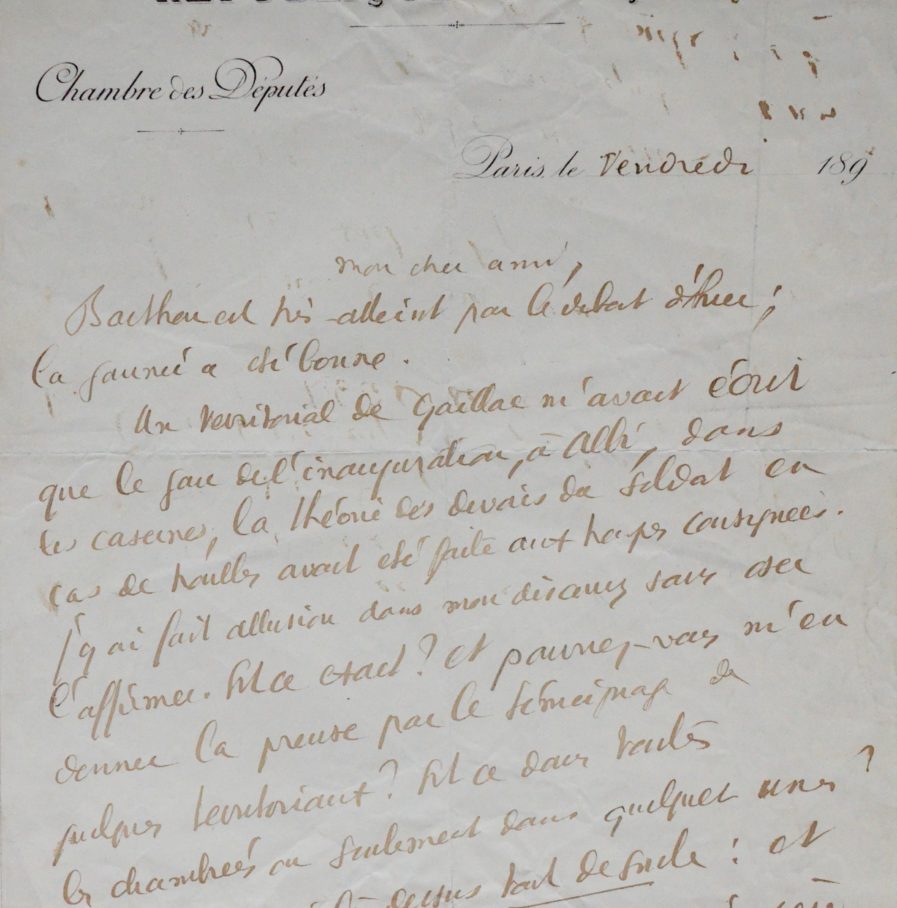 Chambre des Députés
Paris, le Vendredi 189
mon cher ami,
Barthou est très atteint par le débat d'hier ;
la journée a été bonne.
Un territorial de Gaillac m'avait écrit
que le jour de l'inauguration, à Albi, dans
les casernes, la théorie des devoirs du soldat en
cas de troubles avait été faite aux troupes consignées.
J'y ai fait allusion dans mon discours sans oser
l'affirmer. Est ce exact ? et pourriez-vous m'en
donner la preuve par le témoignage de
quelques territoriaux ? Est ce dans toutes
les chambrées ou seulement dans quelques unes ?
dessus tout de suite : et